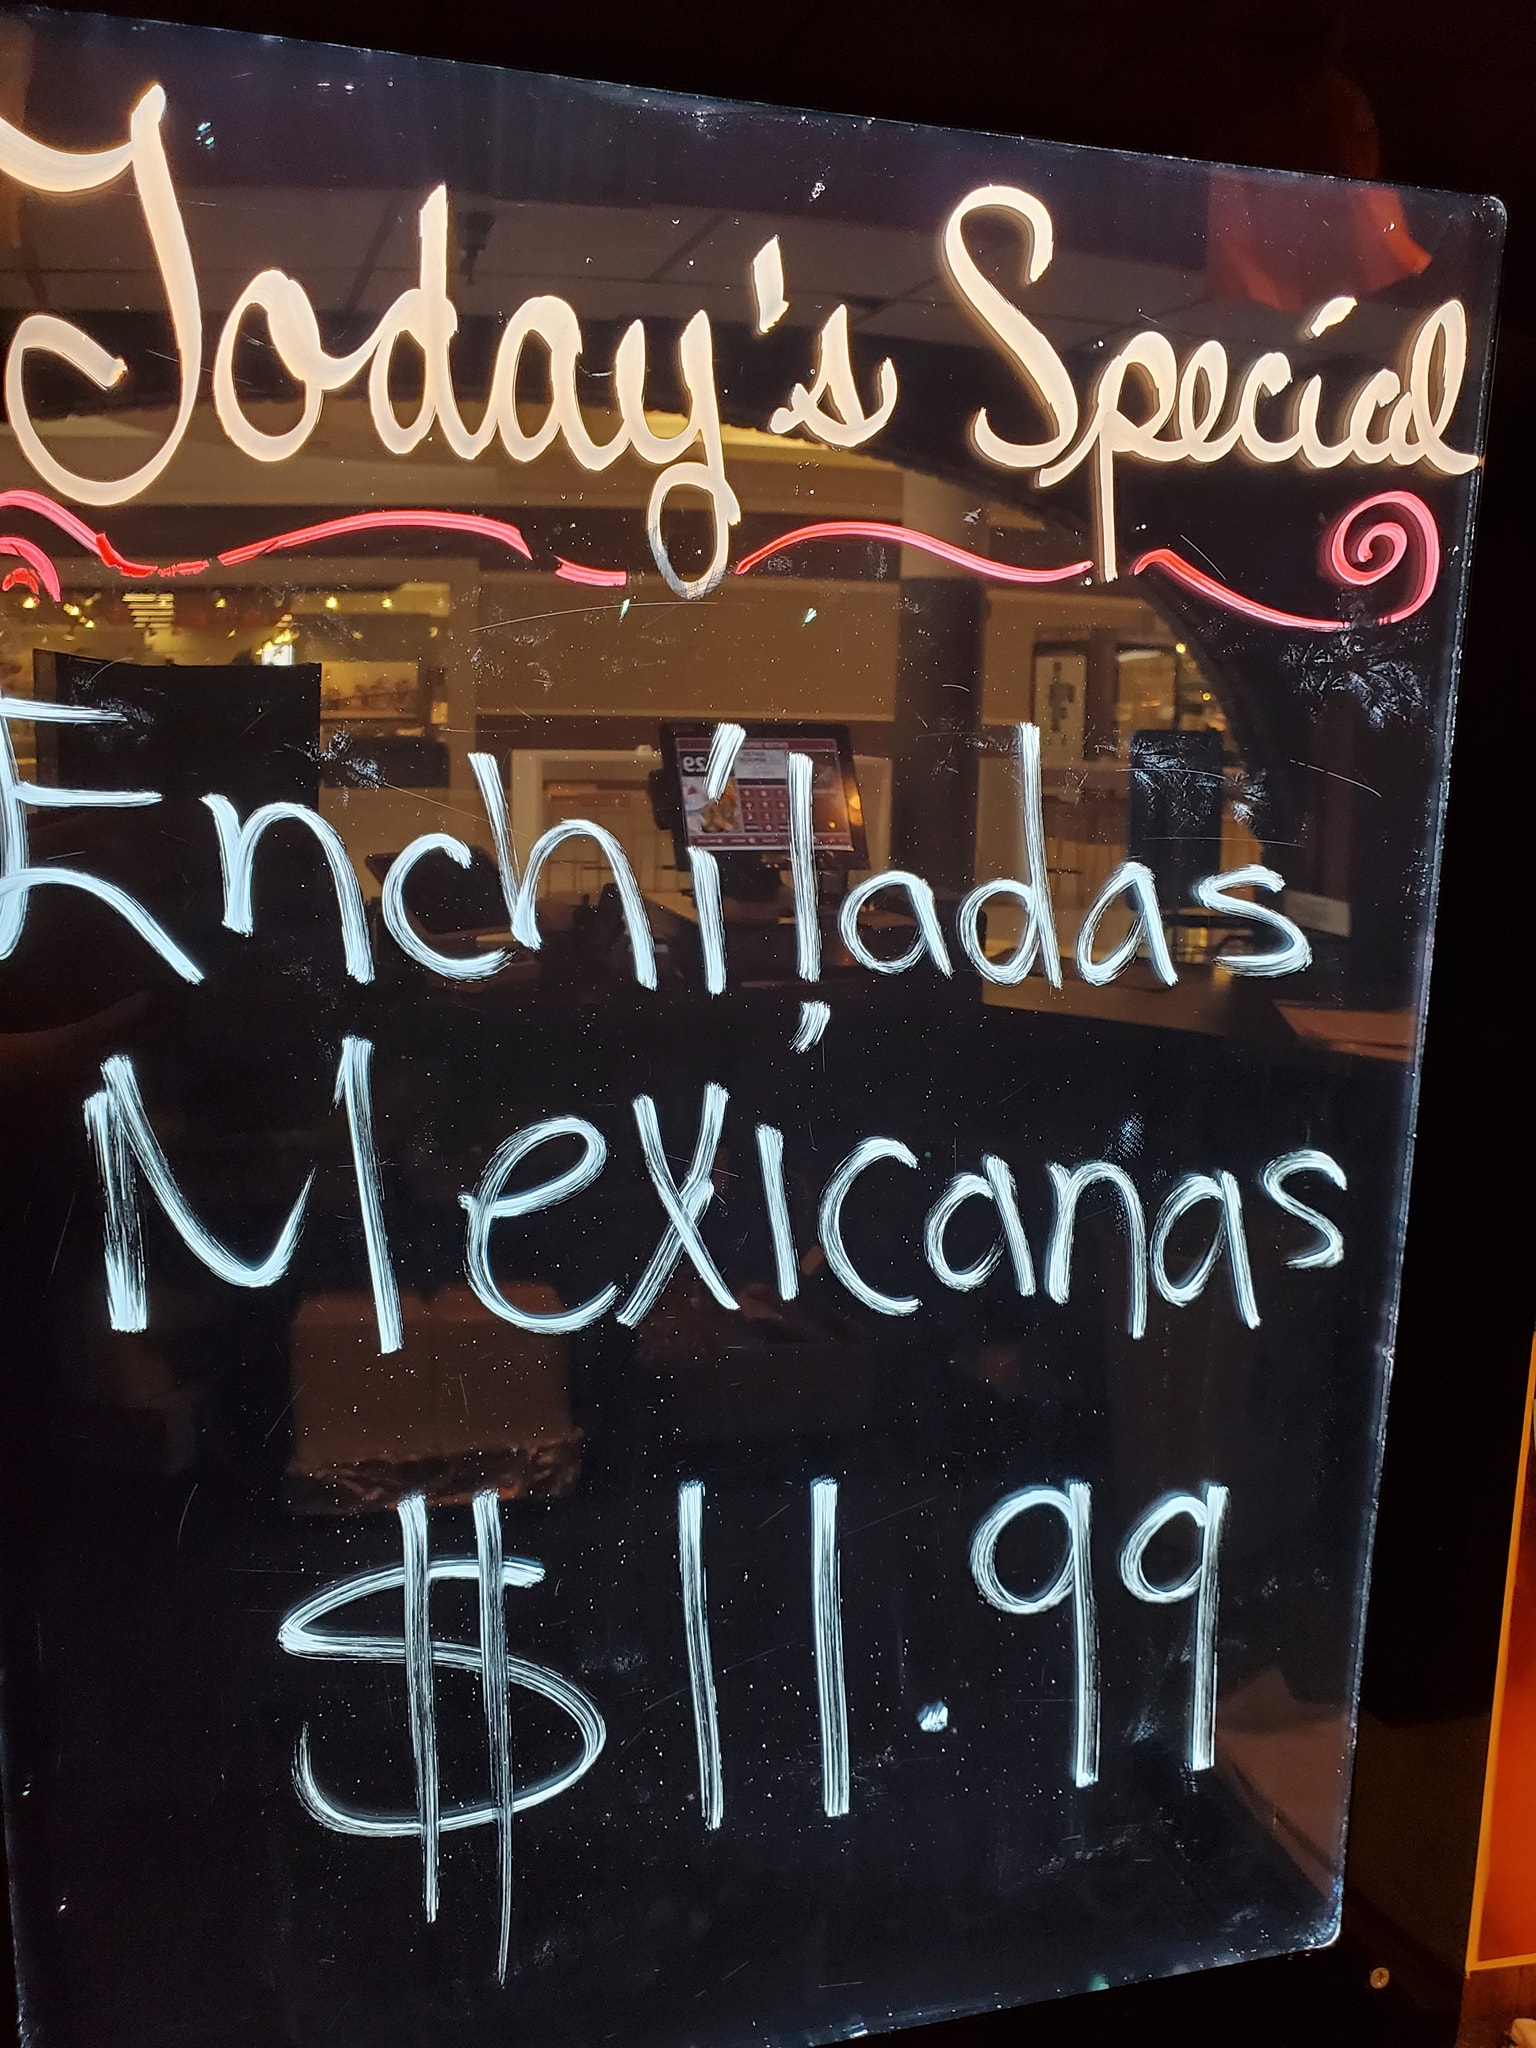 Today's Special
Enchiladas
Mexicanas
$11.99